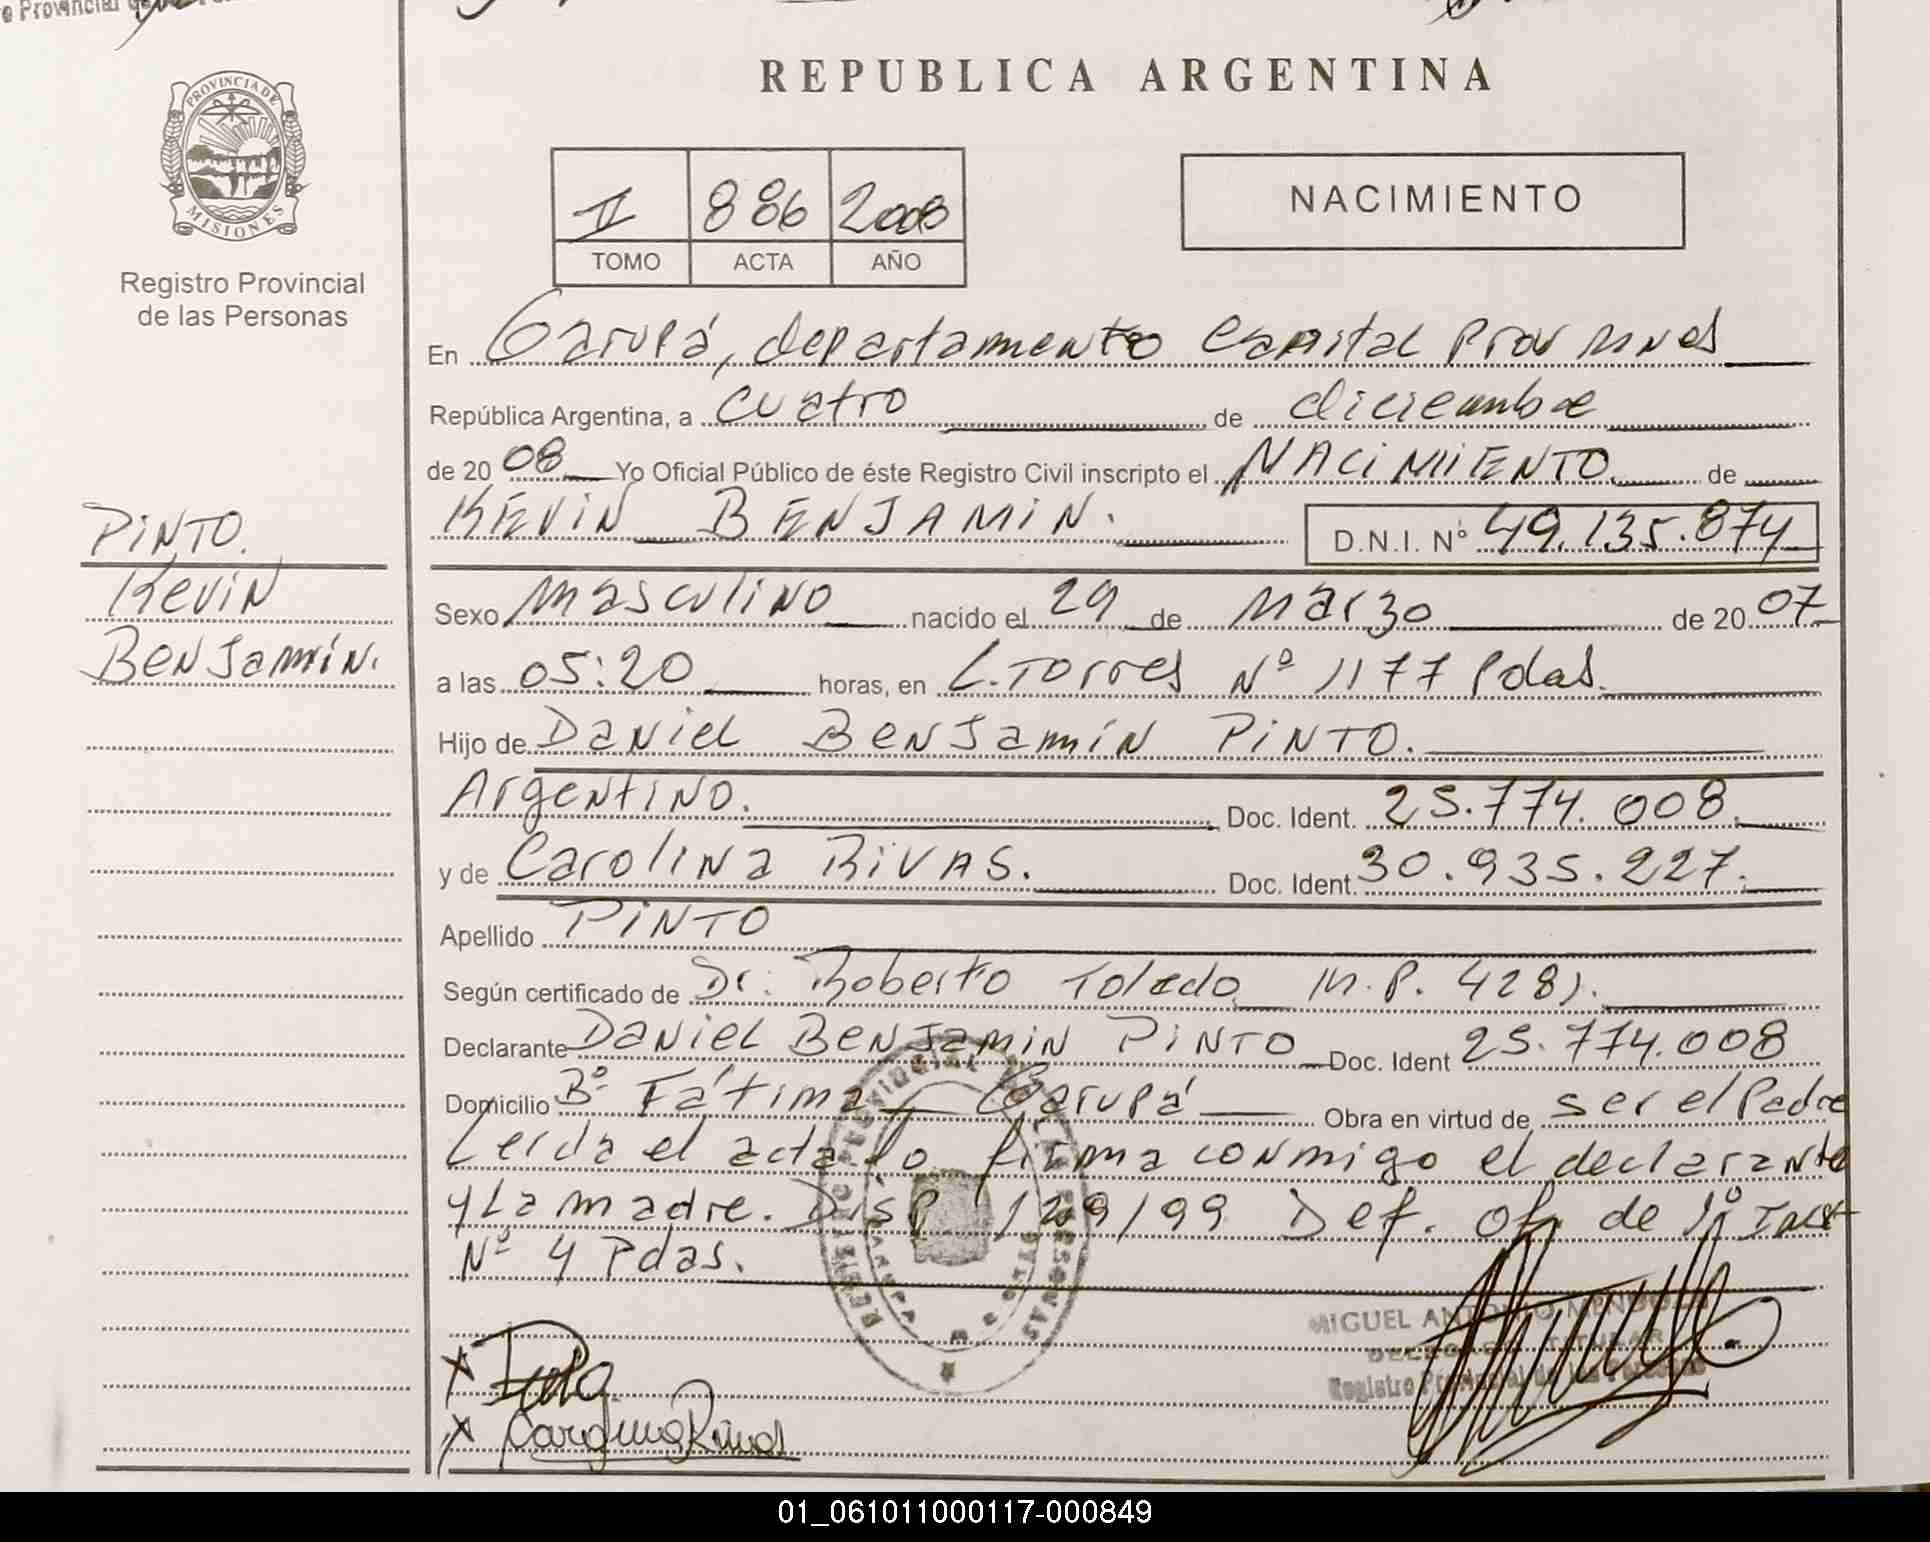 PROVINCIA DE
MISIONES
Registro Provincial
de las Personas
PINTO.
Kevin
Benjamín.
REPUBLICA ARGENTINA
II 886 2008
TOMO ACTA AÑO
NACIMIENTO
En Garupá, departamento Capital Prov Mnes
República Argentina, a cuatro de diciembre
de 2008 Yo Oficial Público de éste Registro Civil inscripto el NACIMIENTO de
KEVIN BENJAMIN. D.N.I. Nº 49.135.874
Sexo masculino nacido el 29 de Marzo de 2007
a las 05:20 horas, en L. Torres Nº 1177 Pdas.
Hijo de Daniel Benjamín PINTO.
Argentino. Doc. Ident. 25.774.008.
y de Carolina RIVAS. Doc. Ident. 30.935.227.
Apellido PINTO
Según certificado de Dr. Roberto Toledo M.P. 4281.
Declarante Daniel Benjamin PINTO Doc. Ident 25.774.008
Domicilio Bº Fátima Garupá Obra en virtud de ser el Padre
Leida el acta lo firma conmigo el declarante
y la madre. Disp 129/99 Def. of. de 1º Inst
Nº 4 Pdas.
MIGUEL ANTONIO MENDOZA
DELEGADO TITULAR
Registro Provincial de las Personas
x Pinto
x Carolina Rivas
01_061011000117-000849